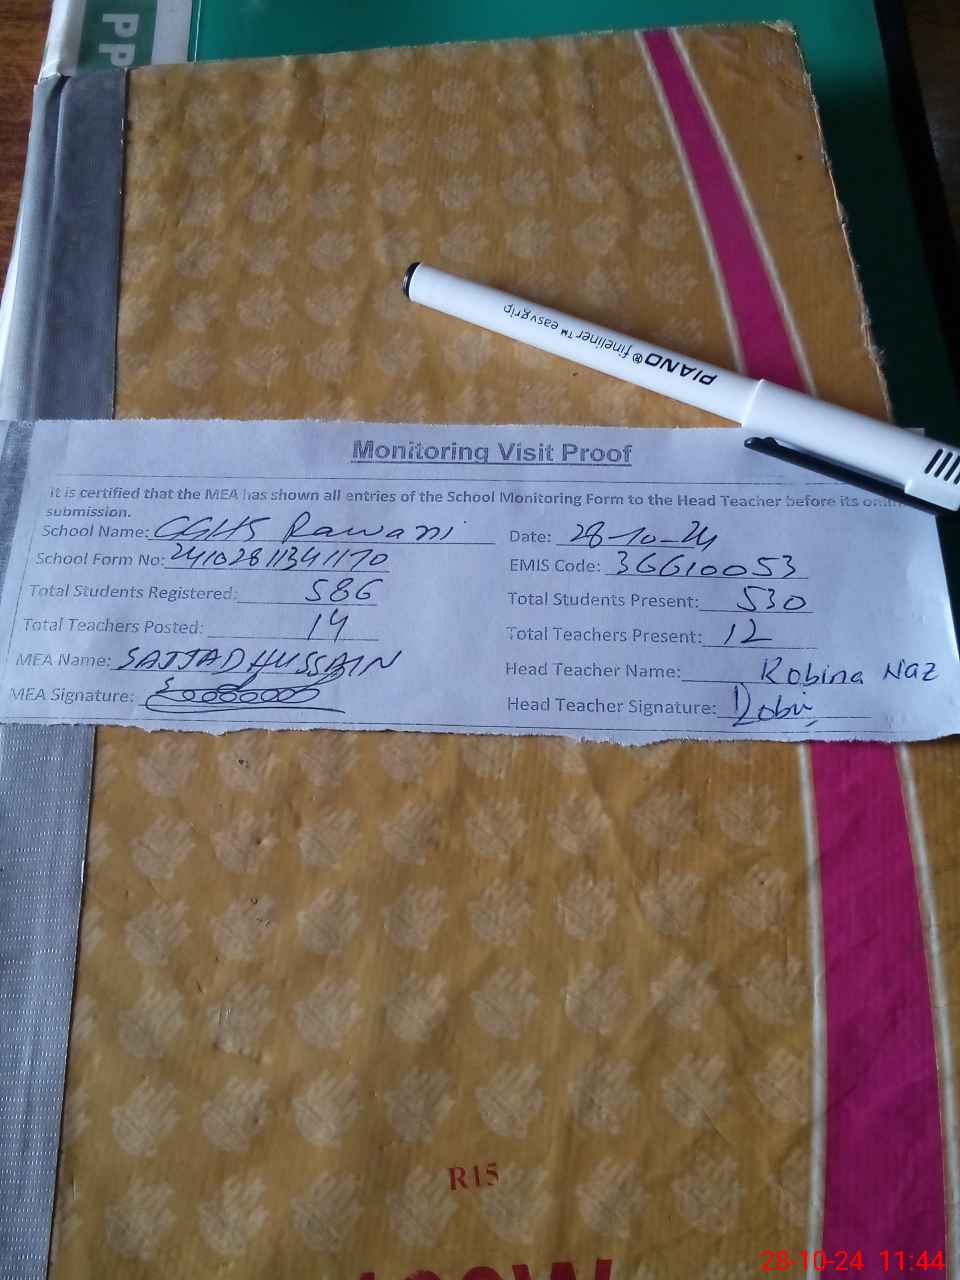 PP
PIANO® fineliner™ easygrip
Monitoring Visit Proof
It is certified that the MEA has shown all entries of the School Monitoring Form to the Head Teacher before its
submission.
School Name: GGHS Rawani Date: 28-10-24
School Form No: 24102811341170 EMIS Code: 36610053
Total Students Registered: 586 Total Students Present: 530
Total Teachers Posted: 14 Total Teachers Present: 12
MEA Name: SAJJAD HUSSAIN Head Teacher Name: Robina Naz
MEA Signature: Head Teacher Signature: Robi
R15
28-10-24 11:44